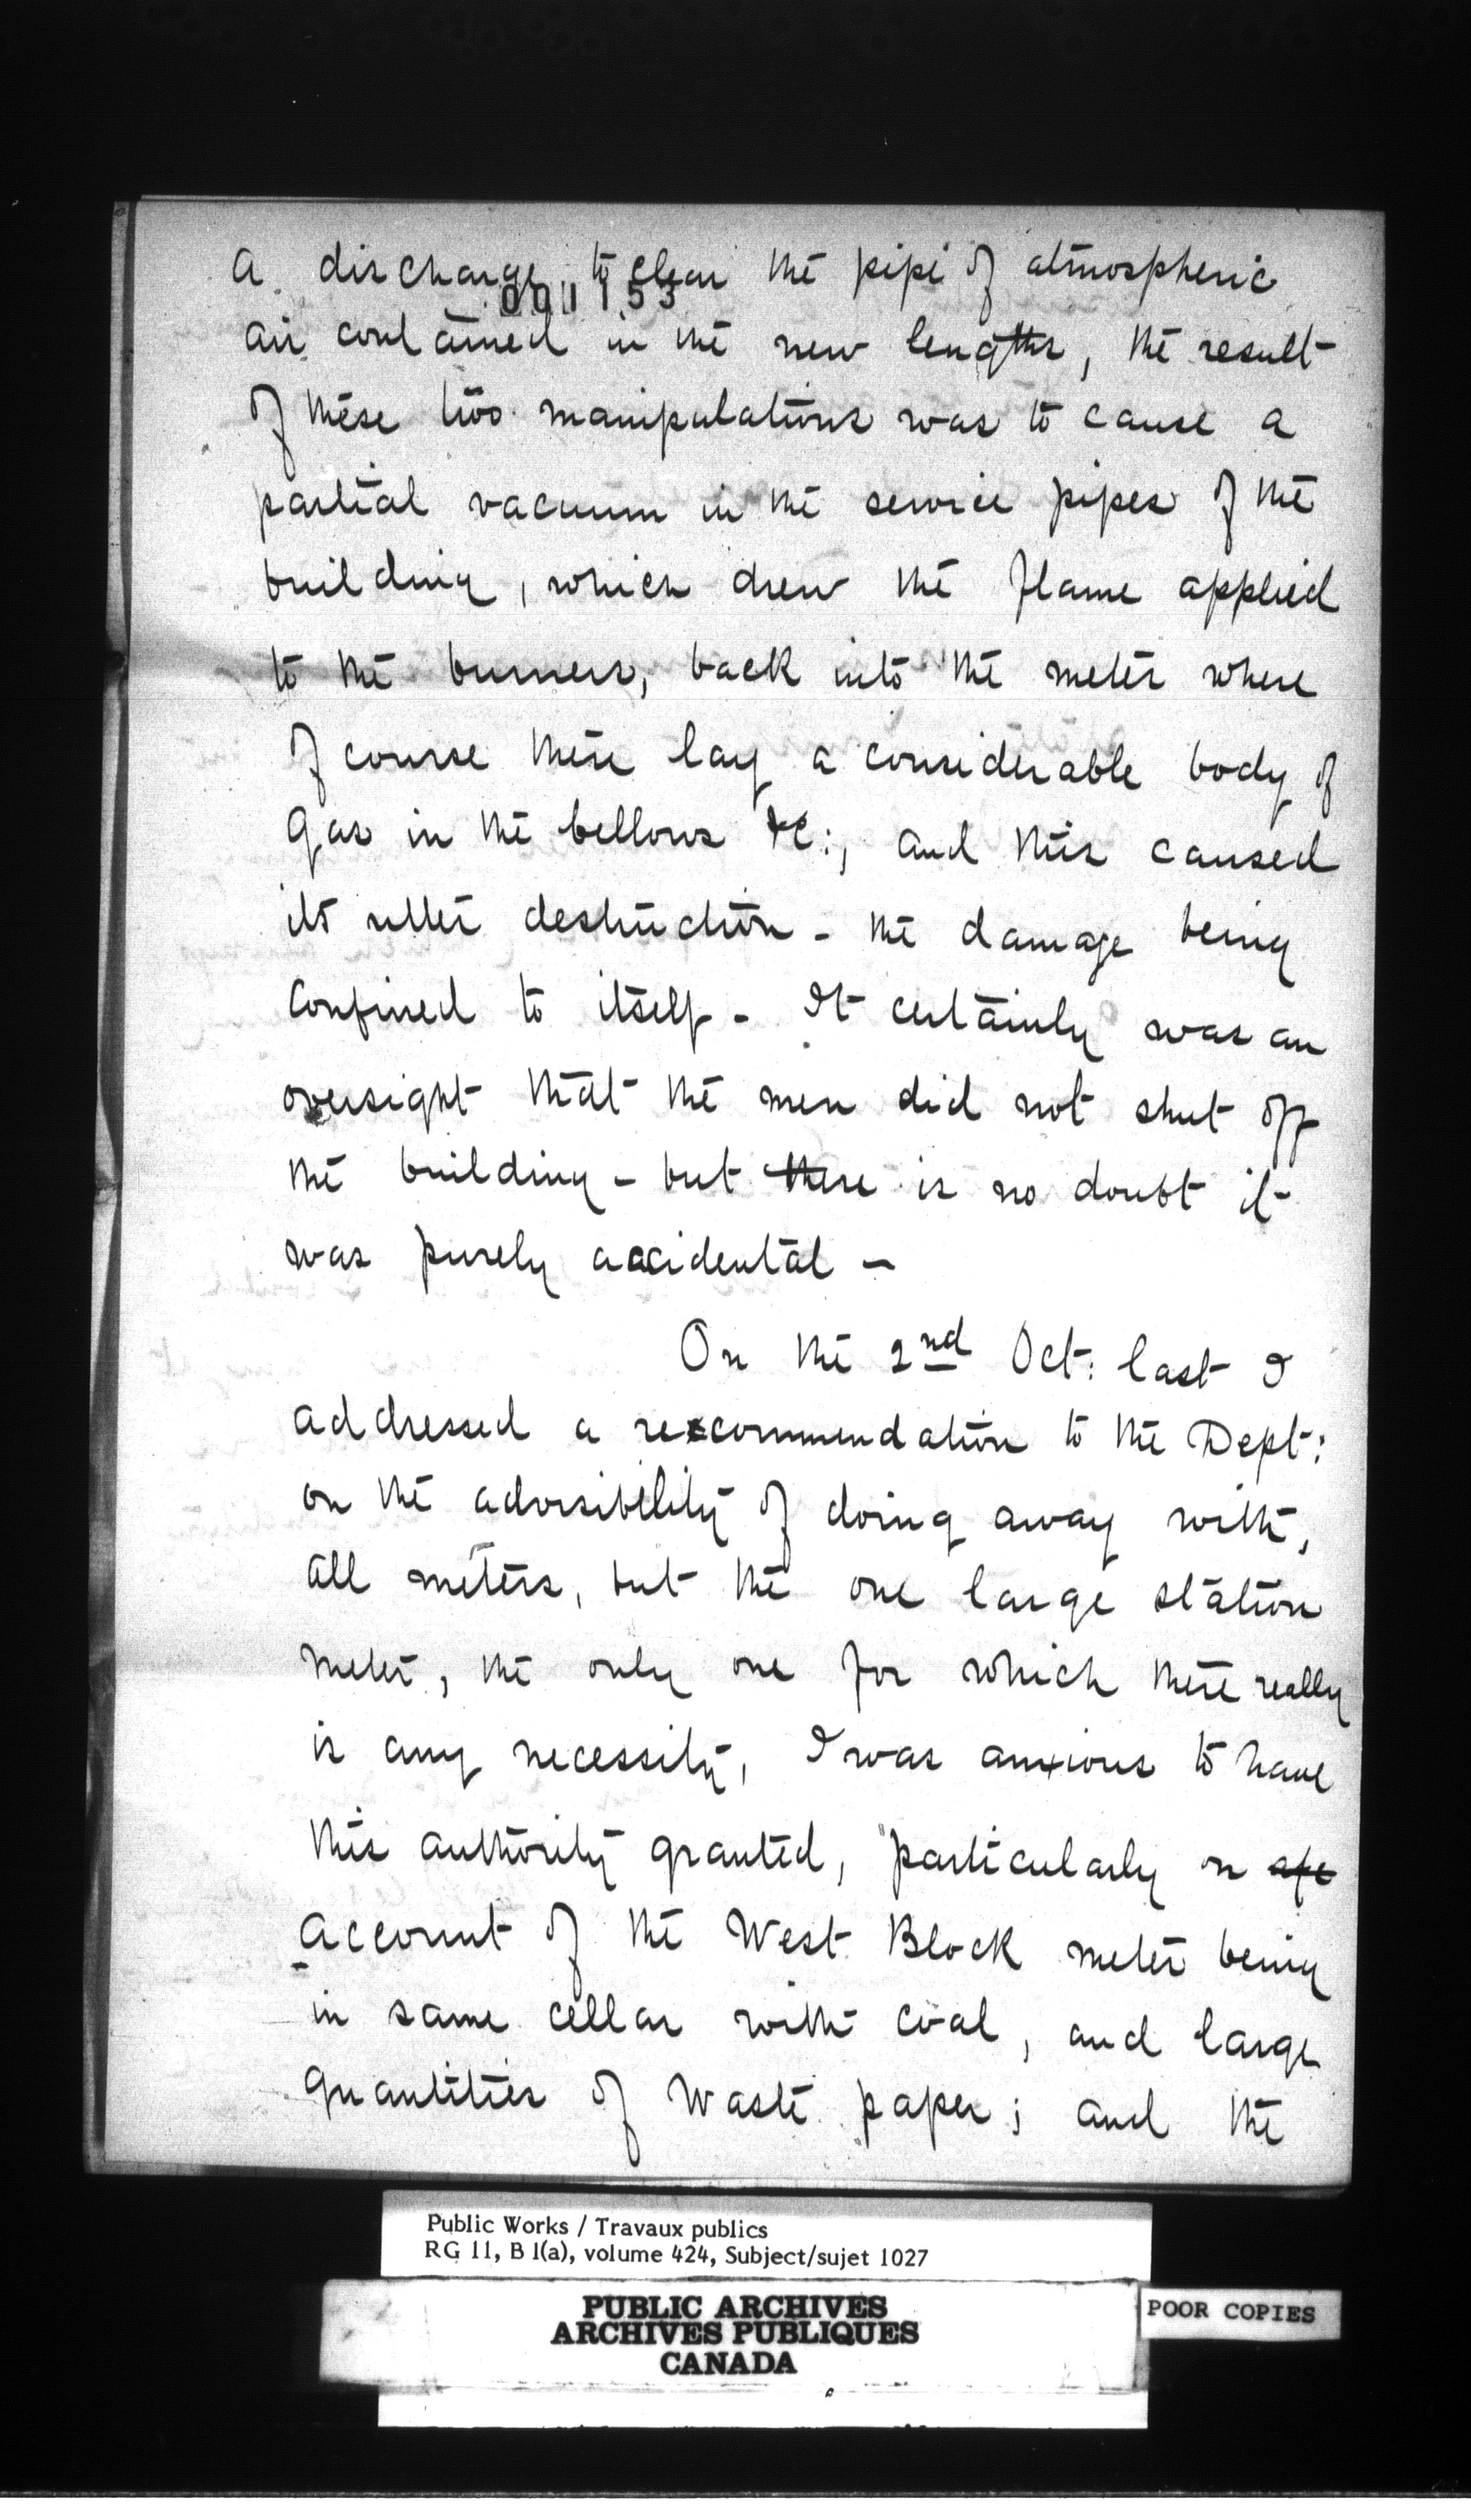 a discharge, to clear the pipe of atmospheric
001153
air contained in the new lengths, the result
of these two manipulations was to cause a
partial vacuum in the service pipes of the
building, which drew the flame applied
to the burners, back into the meter where
of course there lay a considerable body of
gas in the bellows &c:, and this caused
its utter destruction - the damage being
confined to itself - It certainly was an
oversight that the men did not shut off
the building - but there is no doubt it
was purely accidental -
On the 2nd Oct: last I
addressed a recommendation to the Dept:
on the advisibility of doing away with,
all meters, but the one large station
meter, the only one for which there really
is any necessity, I was anxious to have
this authority granted, particularly on
account of the West Block meter being
in same cellar with coal, and large
quantities of waste paper; and the
Public Works / Travaux publics
RG 11, B 1(a), volume 424, Subject/sujet 1027
PUBLIC ARCHIVES
ARCHIVES PUBLIQUES
CANADA
POOR COPIES